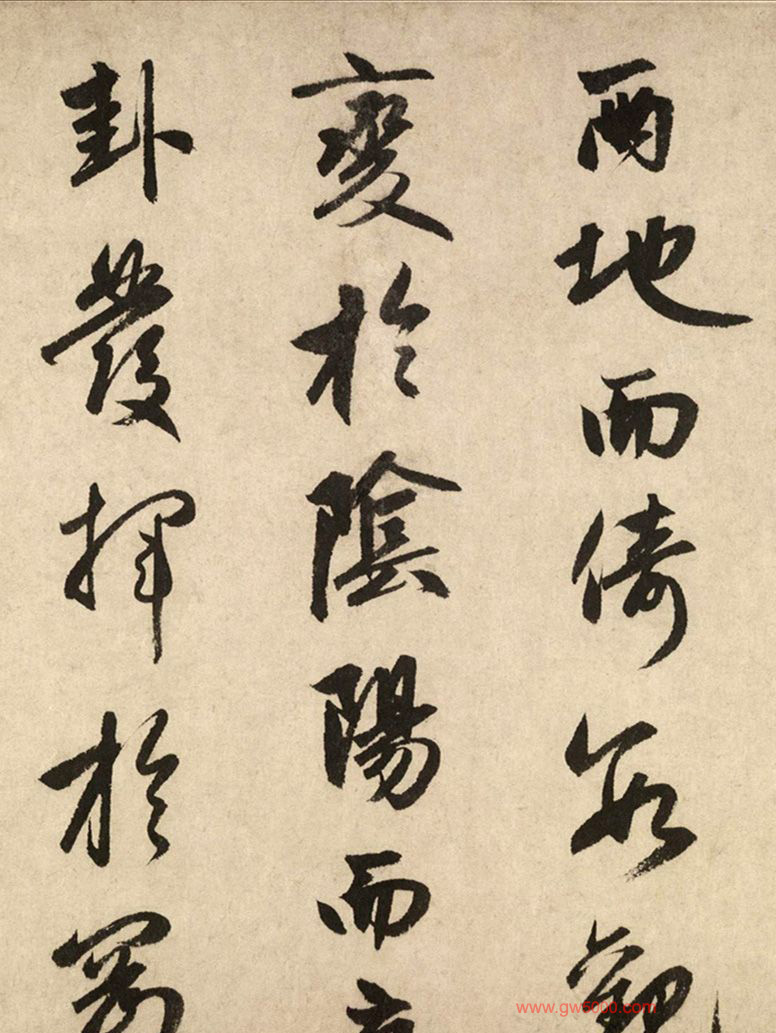 兩地而倚數觀
變於陰陽而立
卦發揮於剛
www.gw5000.com